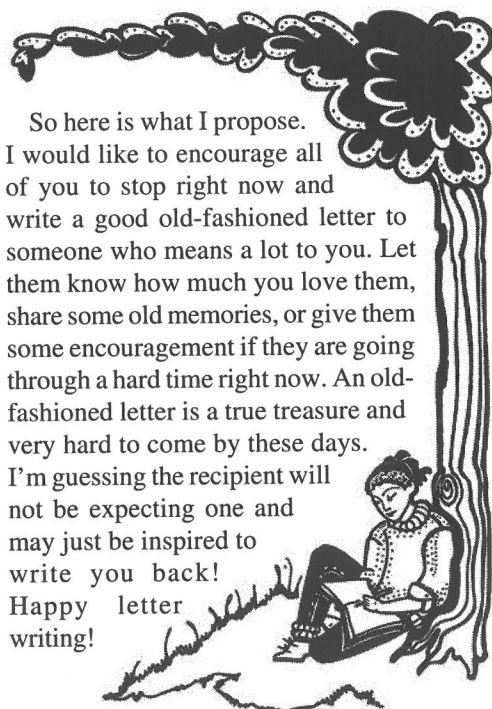 So here is what I propose.
I would like to encourage all
of you to stop right now and
write a good old-fashioned letter to
someone who means a lot to you. Let
them know how much you love them,
share some old memories, or give them
some encouragement if they are going
through a hard time right now. An old-
fashioned letter is a true treasure and
very hard to come by these days.
I'm guessing the recipient will
not be expecting one and
may just be inspired to
write you back!
Happy letter
writing!